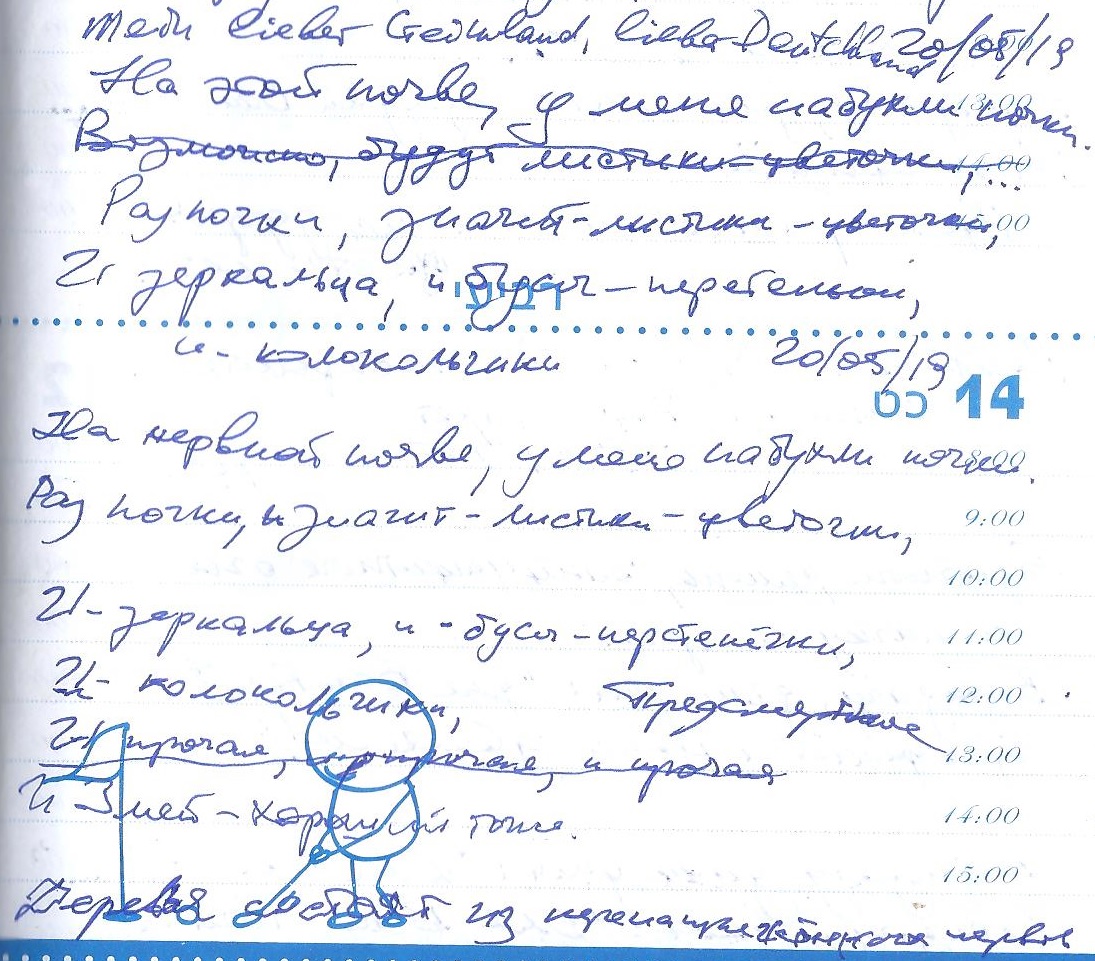 Mein lieber Greenland, liebe Deutchland 20/05/19
На этой почве, у меня набухли почки.
13:00
Возможно, будут листики-цветочки,...
14:00
Раз почки, значит-листики-цветочки,
И зеркальца, и бусы-
רביעי
и- колокольчики 20/05/19
כט 14
На нервной почве, у меня набухли почки.
Раз почки, и значит-листики-цветочки,
9:00
10:00
И-зеркальца, и-бусы-перстенёчки,
11:00
И- колокольчики, Предсмертное
12:00
И прочая, и прочая
13:00
И Змей-Хороший тоже.
14:00
15:00
Деревья состоят из нервов